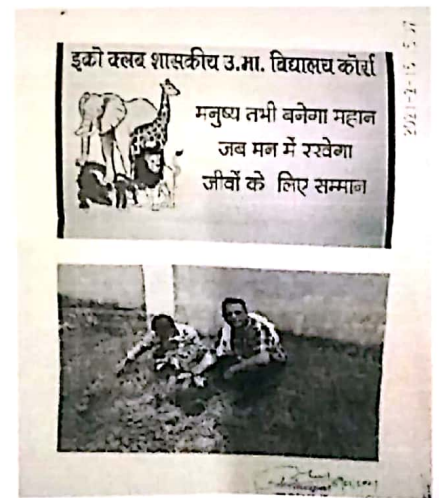 इको क्लब शासकीय उ.मा. विद्यालय कोर्रा
मनुष्य तभी बनेगा महान
जब मन में रखेगा
जीवों के लिए सम्मान